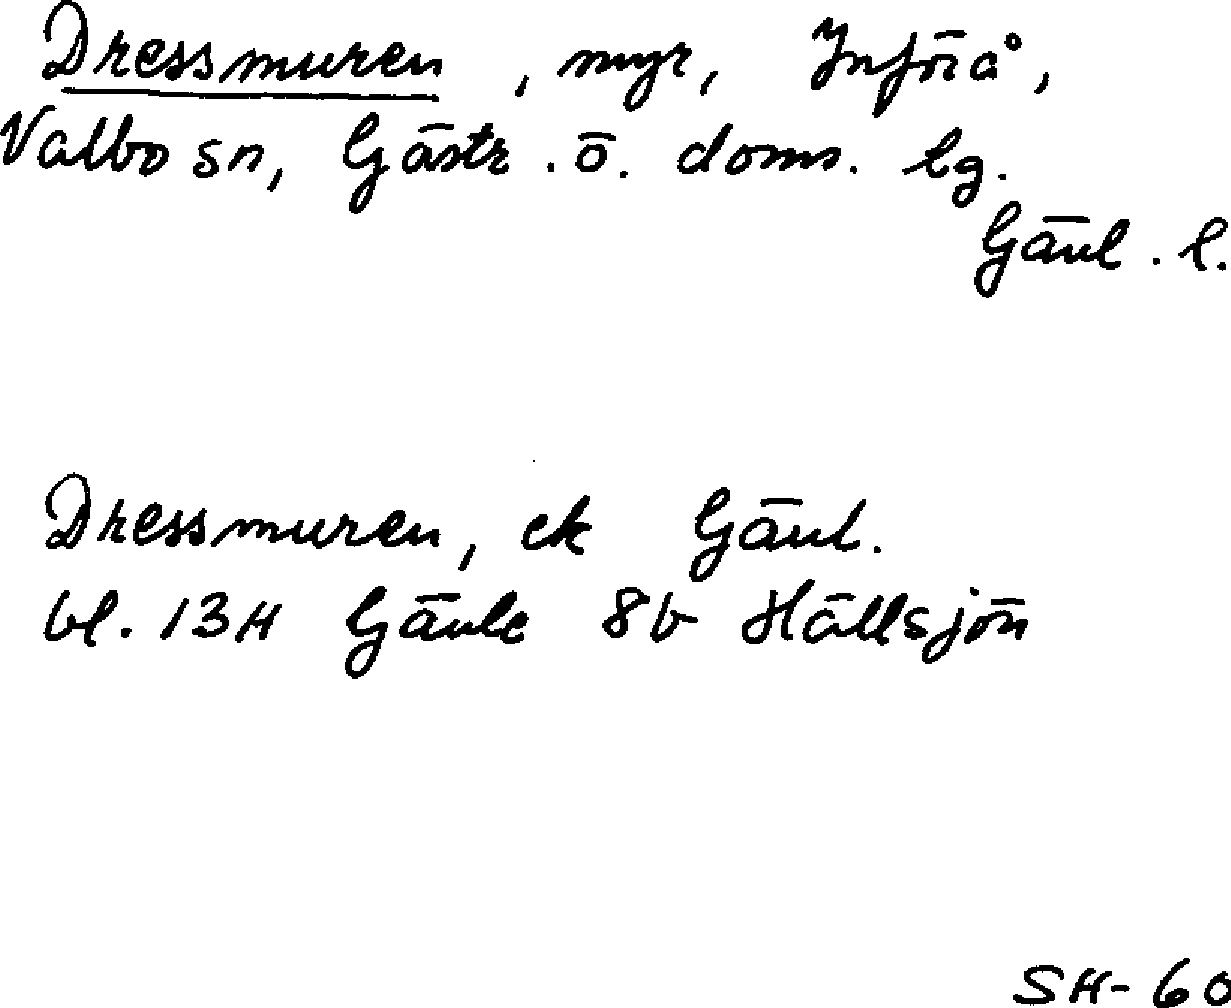 Dressmuren, myr, Införå,
Valbo sn, Gästr. ö. doms. lg.
Gävl. l.
Dressmuren, ek Gävl.
bl. 13H Gävle 8b Hällsjön
SH-60